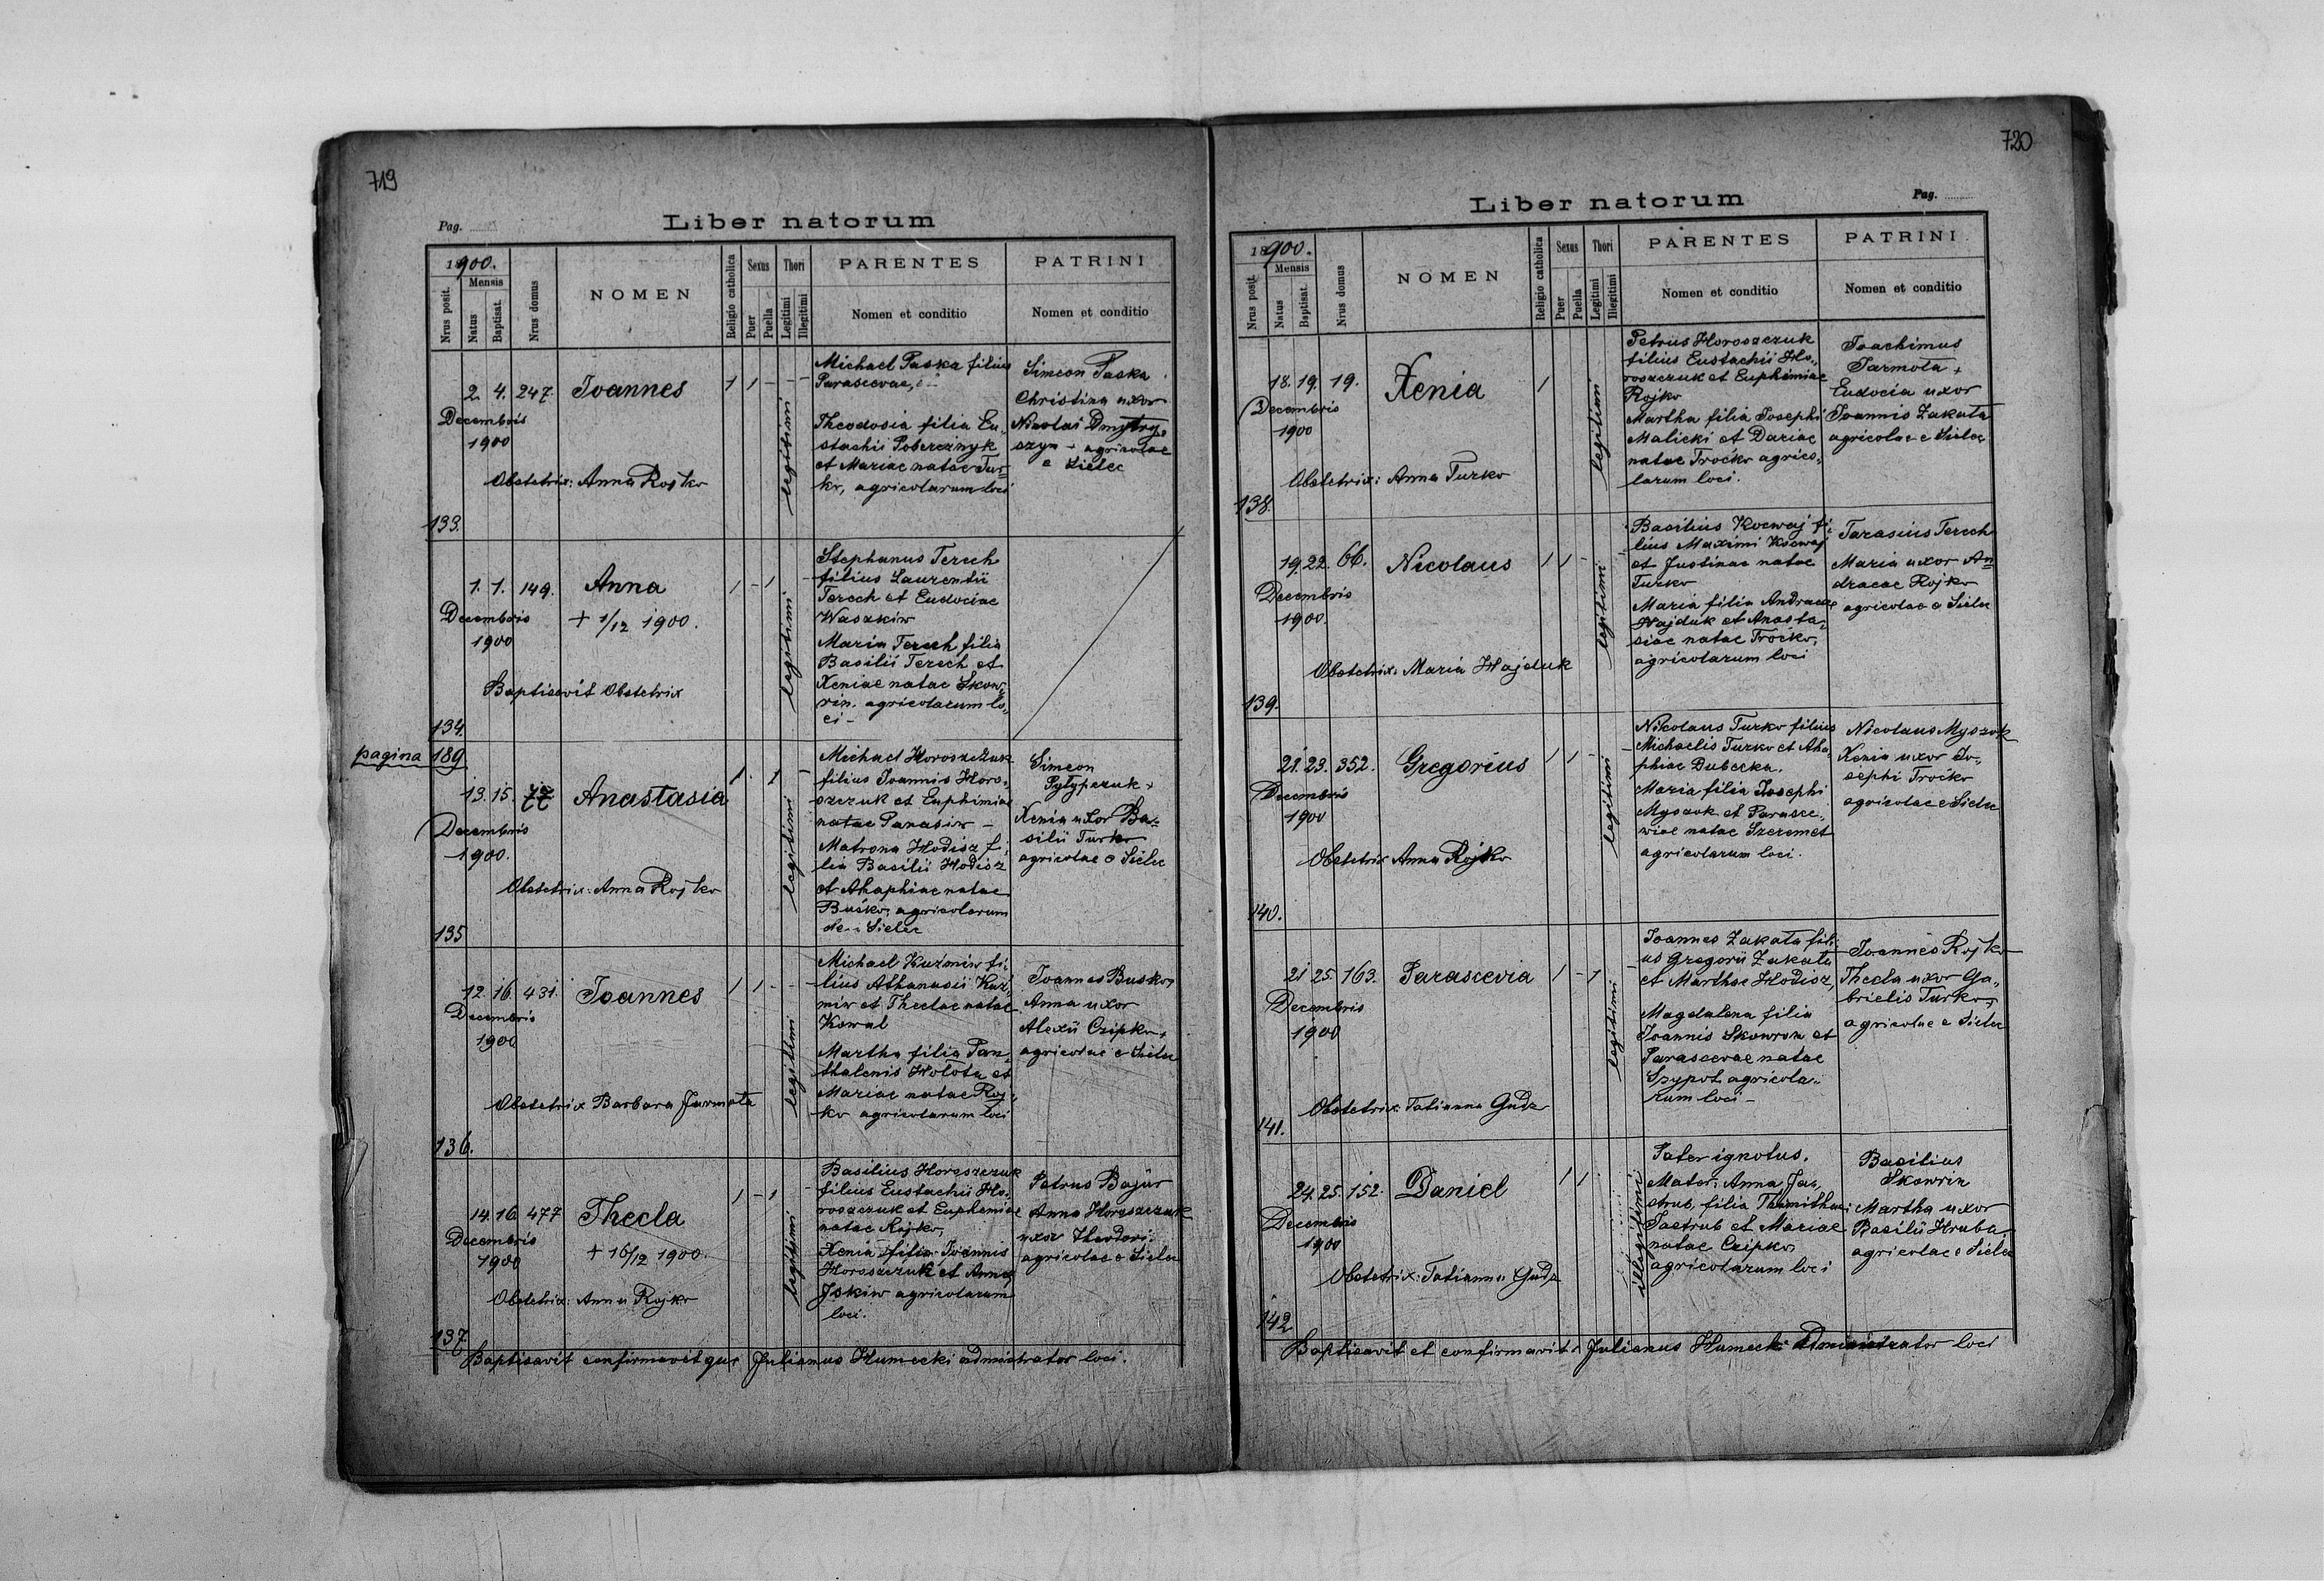 719
Pag.
Liber natorum
1900.
Mensis
Nrus posit.
Natus
Baptisat.
Nrus domus
NOMEN
Religio catholica
Sexus
Puer
Puella
Thori
Legitimi
Illegitimi
PARENTES
Nomen et conditio
PATRINI
Nomen et conditio
2. 4. 247. Joannes 1 1 - - -
Decembris
1900
Obstetrix: Anna Rojko
133.
legitimi
Michael Paska filius
Parascevae,
Theodosia filia Eu„
stachii Pobereżnyk
et Mariae natae Tur=
ko, agricolarum loci
Simeon Paska
Christina uxor
Nicolai Dmytry„
szyn - agricolae
e Sielec
1. 1. 149. Anna 1 - 1 -
Decembris
1900
+ 1/12 1900.
Baptisavit Obstetrix
134.
legitimi
Stephanus Terech
filius Laurentii
Terech et Eudociae
Waszkiw
Maria Terech filia
Basilii Terech et
Xeniae natae Skow„
rin, agricolarum lo„
ci -
pagina 189
13. 15. Anastasia 1 - 1 -
Decembris
1900.
Obstetrix: Anna Rojko
135
legitimi
Michael Horoszczuk
filius Joannis Horo„
szczuk et Euphimiae
natae Panasiw -
Matrona Hodisz fi„
lia Basilii Hodisz
et Ahaphiae natae
Buśko, agricolarum
de Sielec
Simeon
Pyłypczuk +
Xenia uxor Ba„
silii Turko
agricolae e Sielec
12. 16. 431. Joannes 1 1 - -
Decembris
1900
Obstetrix Barbara Jarmoła
136.
legitimi
Michael Kuźmiw fi„
lius Athanasii Kuź„
miw et Theclae natae
Kowal
Martha filia Pan„
thalenis Hołota et
Mariae natae Roj„
ko agricolarum loci
Joannes Busko,
Anna uxor
Alexii Czipko,
agricolae e Sielec
14. 16 477 Thecla 1 - 1 -
Decembris
1900
+ 16/12 1900.
Obstetrix: Anna Rojko
137.
legitimi
Basilius Horoszczuk
filius Eustachii Ho„
roszczuk et Euphemiae
natae Rojko,
Xenia filia Joannis
Horoszczuk et Annae
Jskiw agricolarum
loci.
Petrus Bajür
Anna Horoszczuk
uxor Theodori
agricolae e Sielec
Baptisavit confirmavitque Julianus Humecki admistrator loci.
720
Liber natorum
Pag.
1900.
Mensis
Nrus posit.
Natus
Baptisat.
Nrus domus
NOMEN
Religio catholica
Sexus
Puer
Puella
Thori
Legitimi
Illegitimi
PARENTES
Nomen et conditio
PATRINI
Nomen et conditio
18. 19. 19. Xenia 1
Decembris
1900
Obstetrix: Anna Turko
138.
legitimi
Petrus Horoszczuk
filius Eustachii Ho„
roszczuk et Euphimiae
Rojko
Martha filia Josephi
Malicki et Dariae
natae Troćko agrico„
larum loci.
Joachimus
Jarmoła +
Eudocia uxor
Joannis Zakała
agricolae e Sielec
19. 22. 66. Nicolaus 1 1 -
Decembris
1900.
Obstetrix: Maria Hajduk
139.
legitimi
Basilius Kocwaj fi„
lius Maximi Kocwaj
et Justinae natae
Turko
Maria filia Andreae
Hajduk et Anasta„
siae natae Troćko,
agricolarum loci
Tarasius Terech
Maria uxor An
dreae Rojko
agricolae e Sielec
21. 23. 352. Gregorius 1 1 -
Decembris
1900
Obstetrix Anna Rojko
140.
legitimi
Nikolaus Turko filius
Michaelis Turko et Aha„
phiae Dubecka.
Maria filia Josephi
Myszok et Parasce„
wiae natae Szeremet
agricolarum loci.
Nicolaus Myszok
Xenia uxor Jo„
sephi Troćko
agricolae e Sielec
21. 25. 163. Parascevia 1 - 1 -
Decembris
1900
Obstetrix: Tatianna Gudz
141.
legitimi
Joannes Zakała fili„
us Gregorii Zakała
et Marthae Hodisz,
Magdalena filia
Joannis Skowron et
Parascevae natae
Szypot agricola„
rum loci -
Joannes Rojko
Thecla uxor Ga„
brielis Turko,
agricolae e Sielec
24. 25. 152. Daniel 1 1
Decembris
1900
Obstetrix: Tatianna Gudz
142
illegitimi
Pater ignotus.
Mater: Anna Jas„
trub, filia
Jastrub et Mariae
natae Czipko
agricolarum loci
Basilius
Skowrin
Martha uxor
Basilii Hruba,
agricolae e Sielec
Baptisavit et confirmavit: Julianus Humecki Administrator loci